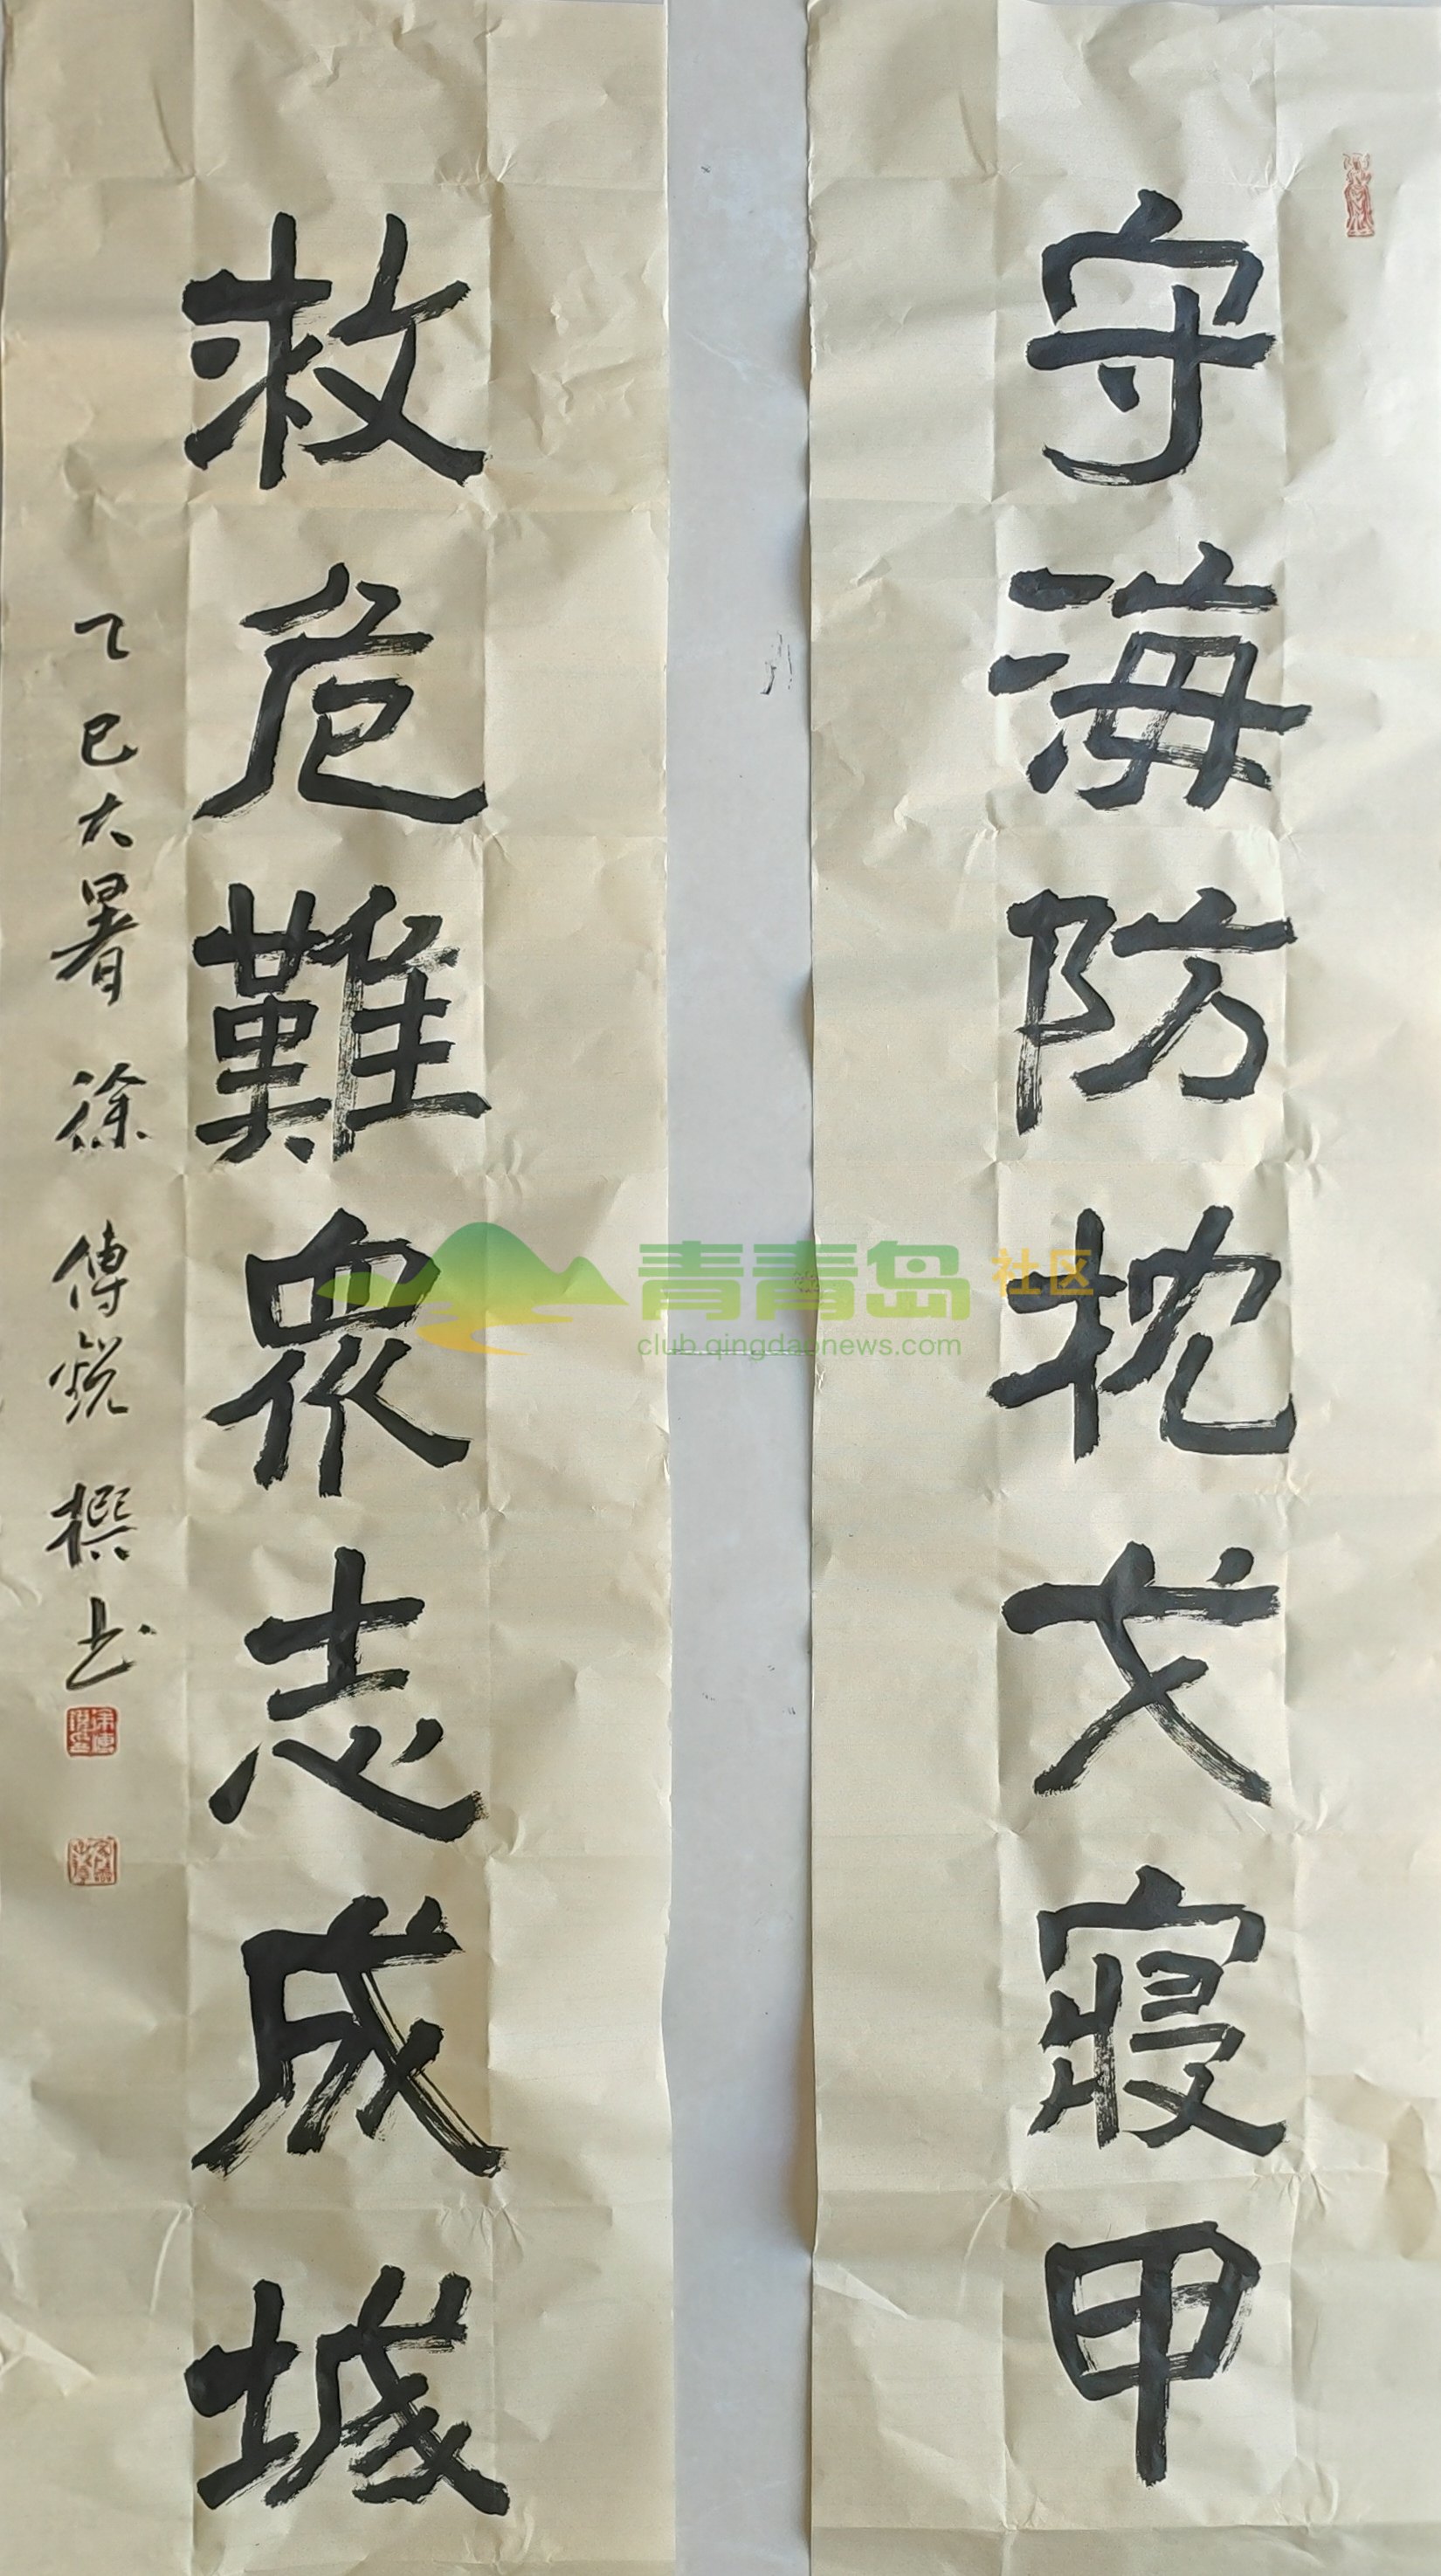 守海防枕戈寝甲
救危難眾志成城
乙巳大暑 徐傳銳 撰书
青青岛 社区
club.qingdaonews.com